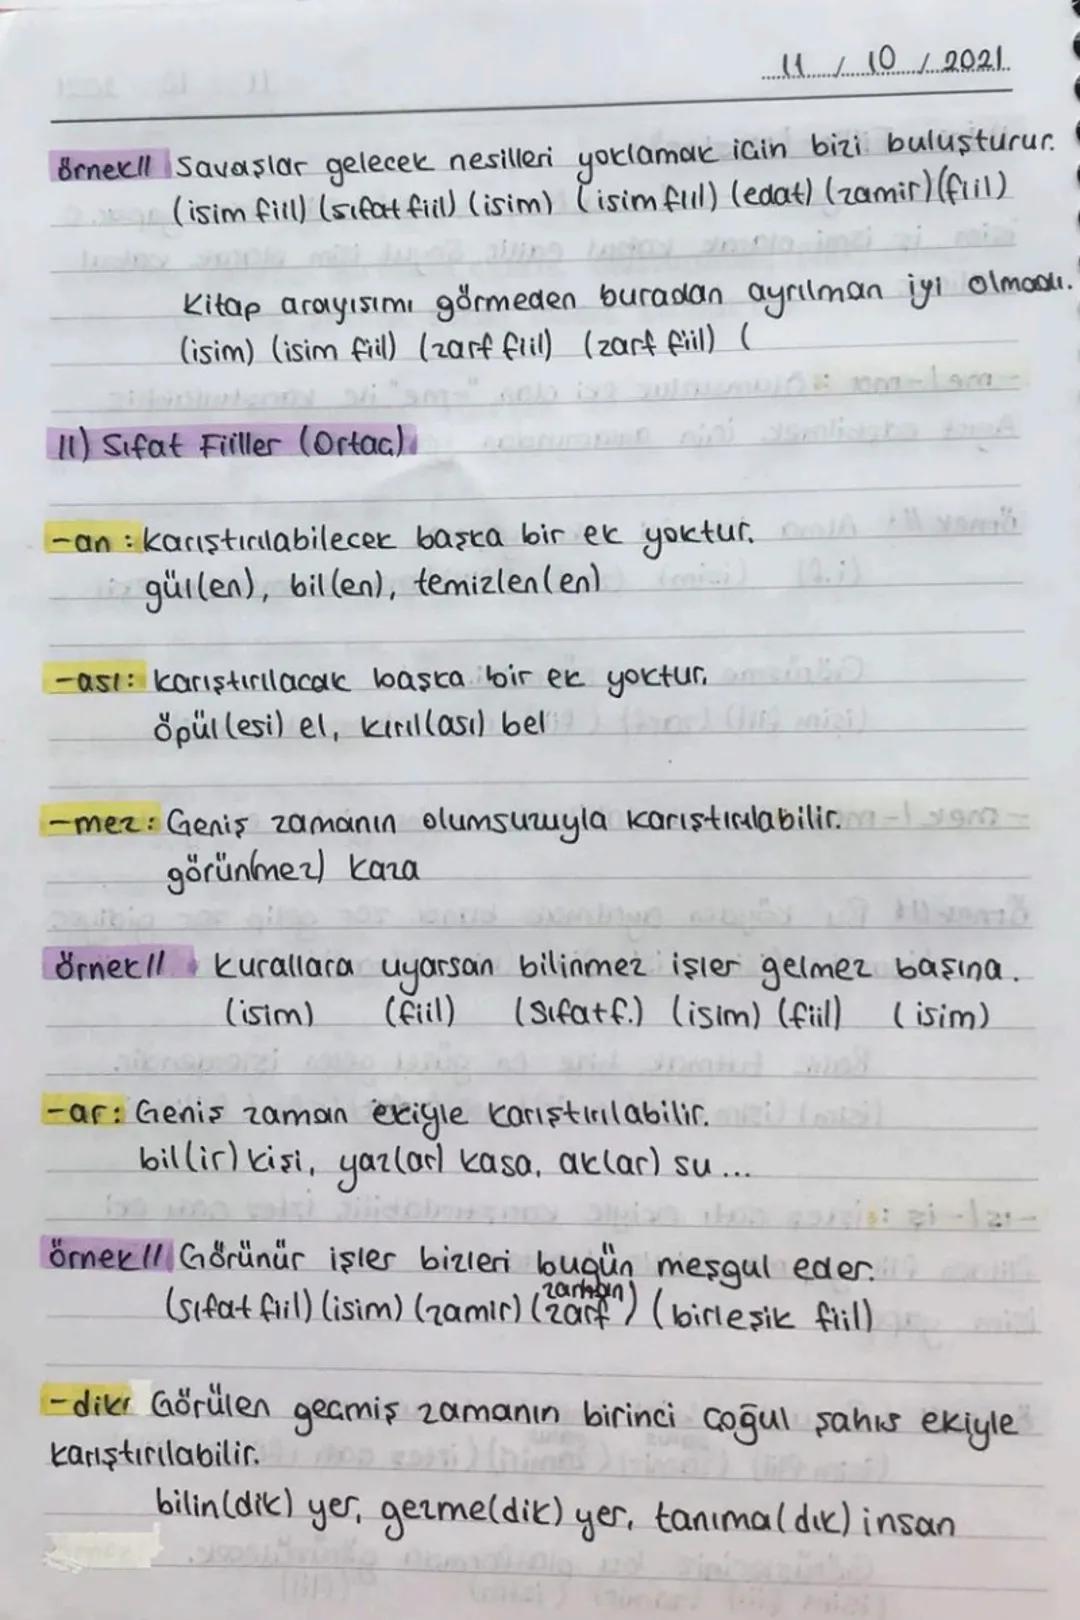 11 / 10 / 2021
örnek// Savaşlar gelecek nesilleri yoklamak için bizi buluşturur.
(isim fiil) (sıfat fiil) (isim) (isim fiil) (edat) (zamir) (fiil)
Kitap arayışımı görmeden buradan ayrılman iyi olmadı.
(isim) (isim fiil) (zarf fiil) (zarf fiil) (
11) Sıfat Fiiller (Ortaç)
-an : karıştırılabilecek başka bir ek yoktur.
gül(en), bil(en), temizlen(en)
-ası: karıştırılacak başka bir ek yoktur.
öpül(esi) el, kırıl(ası) bel
-mez: Geniş zamanın olumsuzuyla karıştırılabilir.
görün(mez) kaza
örnek// Kurallara uyarsan bilinmez işler gelmez başına.
(isim) (fiil) (sıfat f.) (isim) (fiil) (isim)
-ar: Geniş zaman ekiyle karıştırılabilir.
bil(ir) kişi, yaz(ar) kasa, ak(ar) su...
örnek// Görünür işler bizleri bugün meşgul eder.
(sıfat fiil) (isim) (zamir) (zarf) (birleşik fiil)
-dık: Görülen geçmiş zamanın birinci çoğul şahıs ekiyle
karıştırılabilir.
bilin(dik) yer, gezme(dik) yer, tanıma(dık) insan